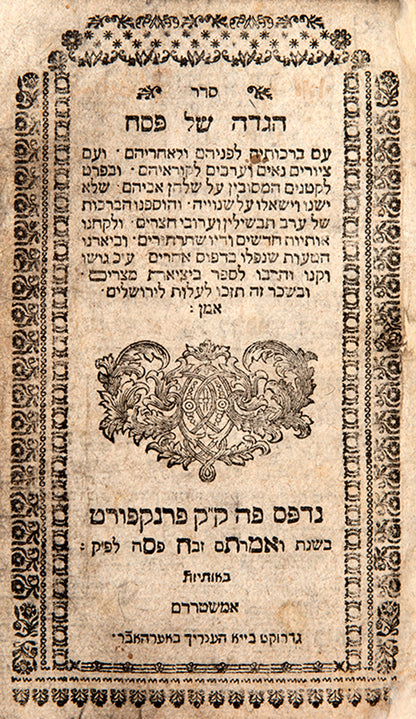 סדר
הגדה של פסח
עם ברכותיה לפניהם ולאחריהם · ועם
ציורים נאים וערבים לקוראיהם · ובפרט
לקטנים המסובין על שלחן אביהם · שלא
ישנו וישאלו על שנוייה · והוספנו הברכות
של ערב תבשילין וערובי חצרים · ולקחנו
אותיות חדשים ודיו שחרחרים · וביארנו
הטעות שנפלו בדפוס אחרים · ע״כ גושו
וקנו והרבו לספר ביציאת מצרים ·
ובשכר זה תזכו לעלות לירושלים ·
אמן :
נדפס פה ק״ק פרנקפורט
בשנת ואמרתם זבח פסח לפ״ק :
באותיות
אמשטרדם
גדרוקט בייא הענריך